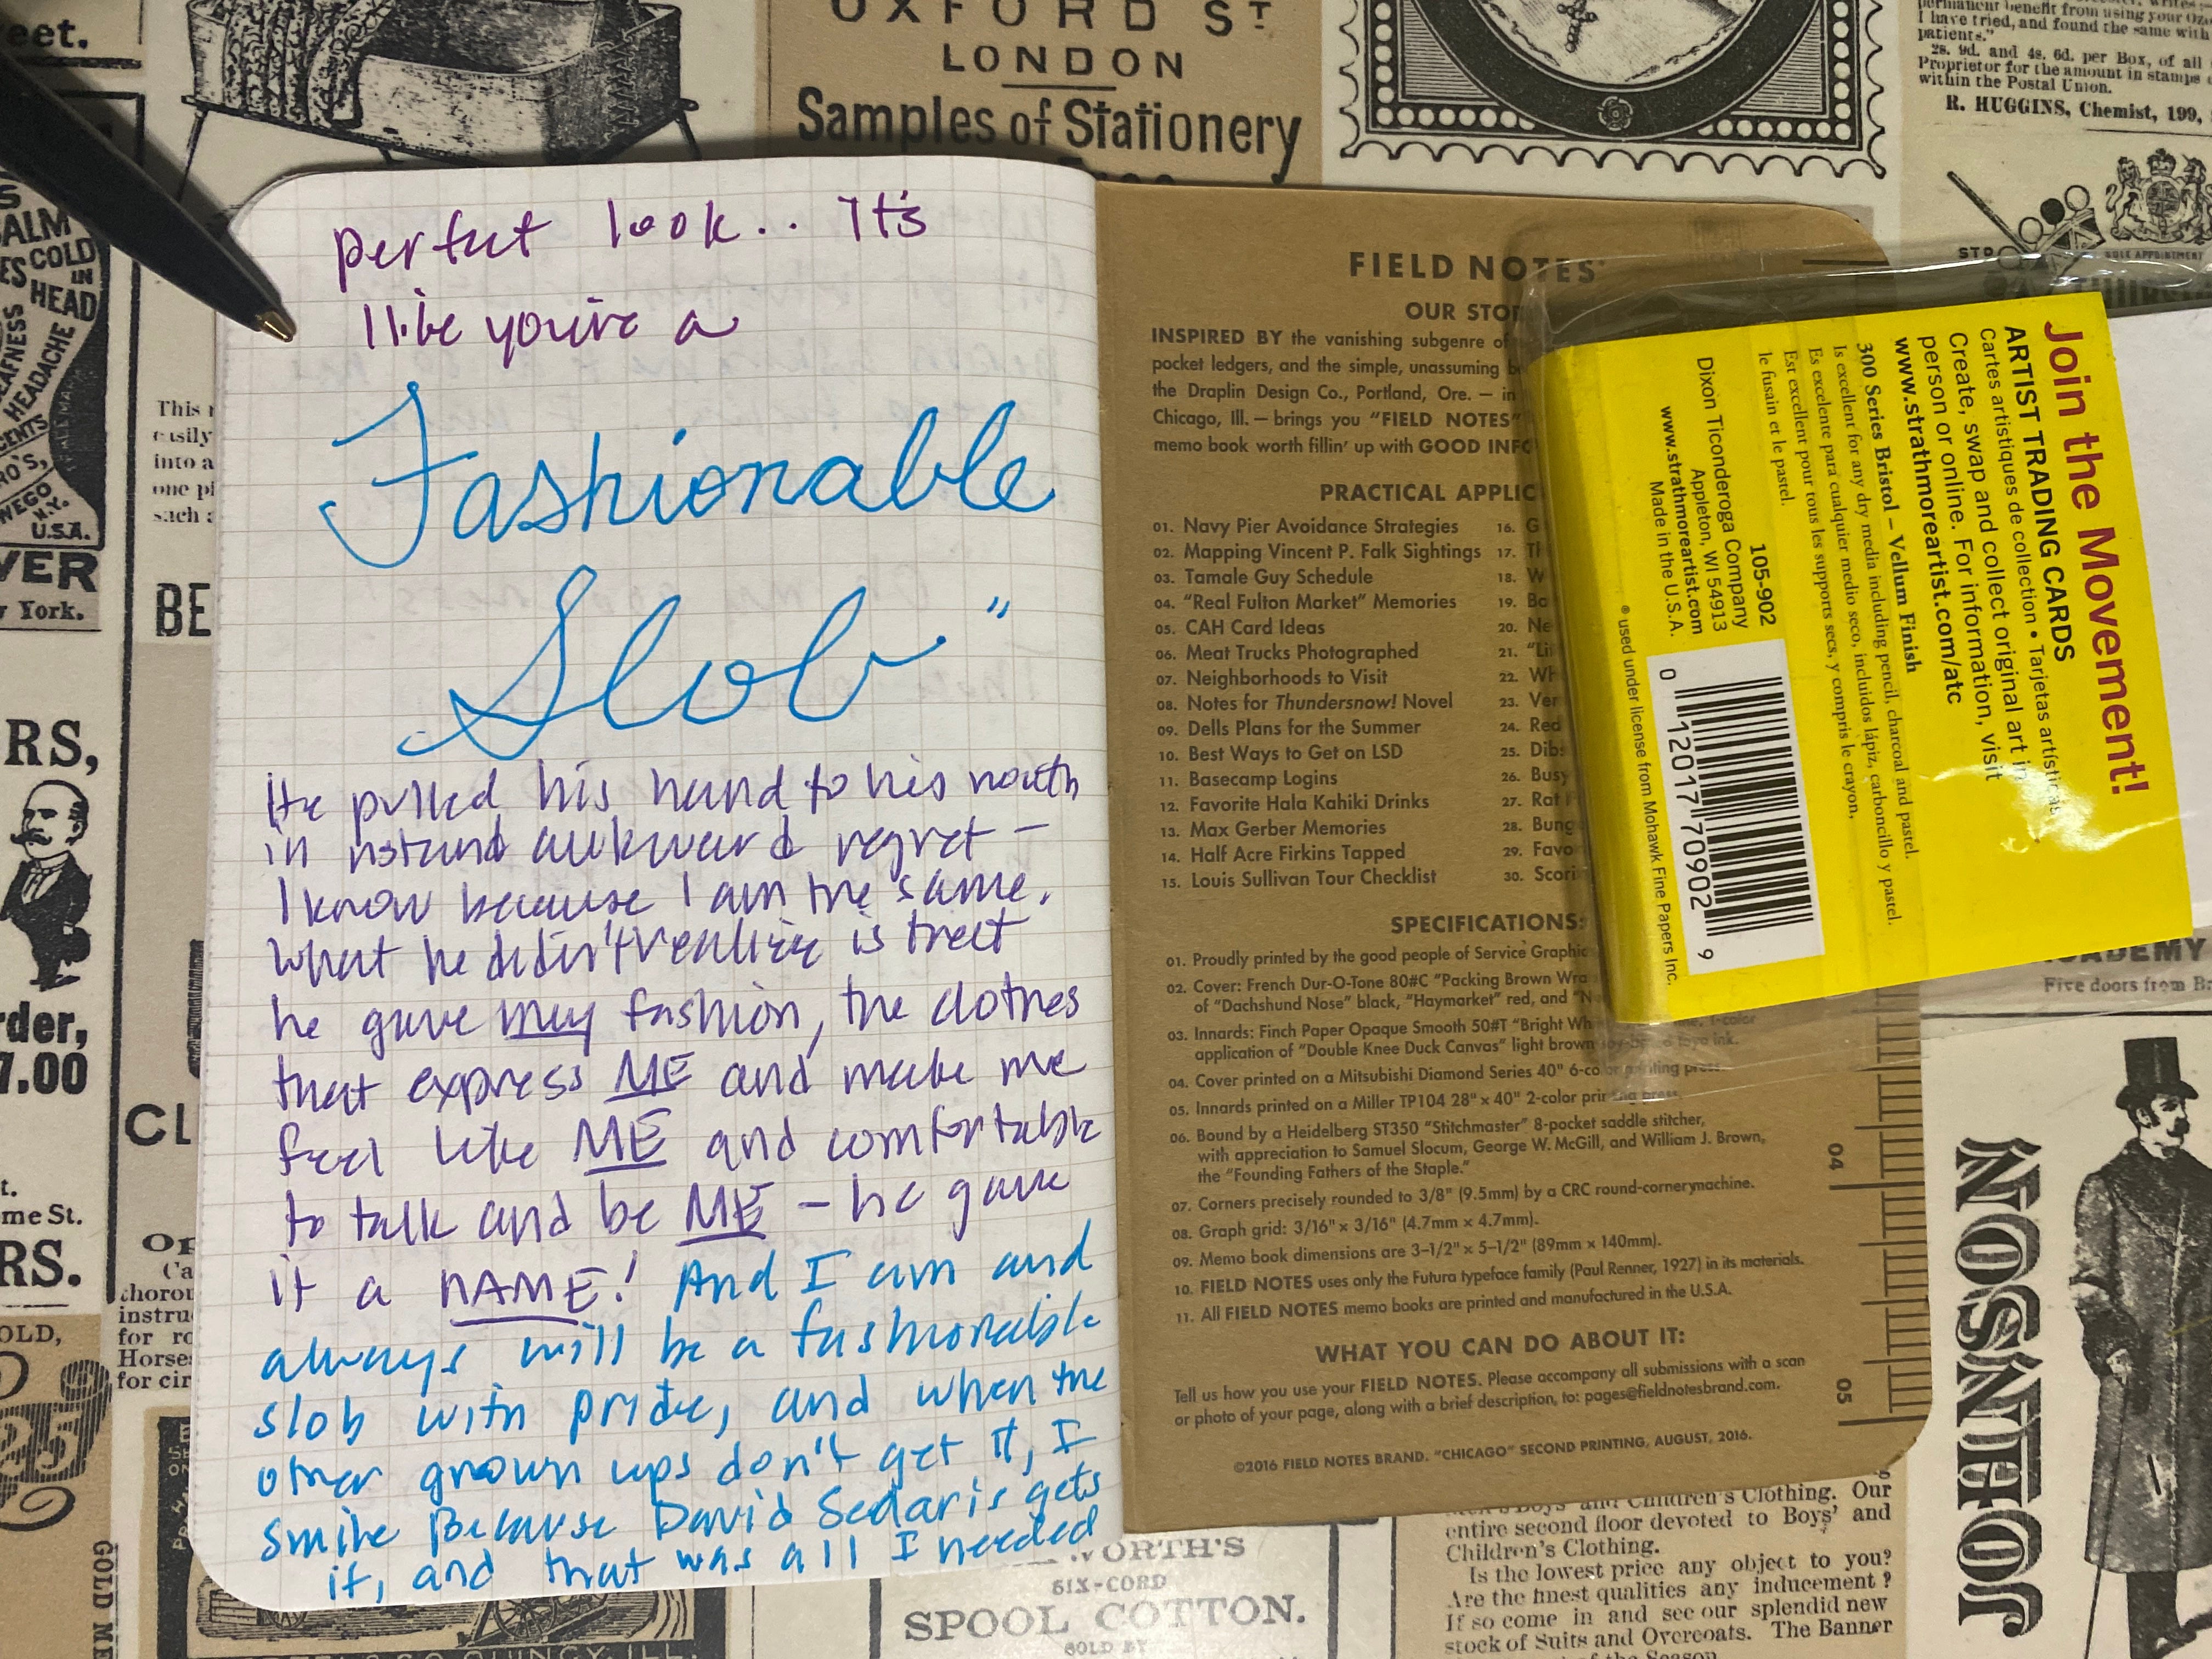 perfect look.. It's
like you're a
Fashionable
Slob"
He pulled his hand to his mouth
in instand awkward regret –
I know because I am the same.
What he didn't realize is that
he gave my fashion, the clothes
that express ME and make me
feel like ME and comfortable
to talk and be ME – he gave
it a NAME! And I am and
always will be a fashionable
slob with pride, and when the
other grown ups don't get it, I
smile Because David Sedaris gets
it, and that was all I needed
FIELD NOTES
OUR STO
INSPIRED BY the vanishing subgenre of
pocket ledgers, and the simple, unassuming
the Draplin Design Co., Portland, Ore. — in
Chicago, Ill. — brings you "FIELD NOTES"
memo book worth fillin' up with GOOD INFO
PRACTICAL APPLIC
01. Navy Pier Avoidance Strategies
02. Mapping Vincent P. Falk Sightings
03. Tamale Guy Schedule
04. "Real Fulton Market" Memories
05. CAH Card Ideas
06. Meat Trucks Photographed
07. Neighborhoods to Visit
08. Notes for Thundersnow! Novel
09. Dells Plans for the Summer
10. Best Ways to Get on LSD
11. Basecamp Logins
12. Favorite Hala Kahiki Drinks
13. Max Gerber Memories
14. Half Acre Firkins Tapped
15. Louis Sullivan Tour Checklist
16. G
17. Th
18. W
19. Ba
20. Ne
21. "Li
22. Wh
23. Ver
24. Red
25. Dibs
26. Busy
27. Rat
28. Bung
29. Favo
30. Scori
SPECIFICATIONS:
01. Proudly printed by the good people of Service Graphic
02. Cover: French Dur-O-Tone 80#C "Packing Brown Wra
of "Dachshund Nose" black, "Haymarket" red, and "N
03. Innards: Finch Paper Opaque Smooth 50#T "Bright Wh 1-color
application of "Double Knee Duck Canvas" light brown soy-based toyo ink.
04. Cover printed on a Mitsubishi Diamond Series 40" 6-color printing press.
05. Innards printed on a Miller TP104 28" x 40" 2-color printing press.
06. Bound by a Heidelberg ST350 "Stitchmaster" 8-pocket saddle stitcher,
with appreciation to Samuel Slocum, George W. McGill, and William J. Brown,
the "Founding Fathers of the Staple."
07. Corners precisely rounded to 3/8" (9.5mm) by a CRC round-cornermachine.
08. Graph grid: 3/16" x 3/16" (4.7mm x 4.7mm).
09. Memo book dimensions are 3–1/2" x 5–1/2" (89mm x 140mm).
10. FIELD NOTES uses only the Futura typeface family (Paul Renner, 1927) in its materials.
11. All FIELD NOTES memo books are printed and manufactured in the U.S.A.
WHAT YOU CAN DO ABOUT IT:
Tell us how you use your FIELD NOTES. Please accompany all submissions with a scan
or photo of your page, along with a brief description, to: pages@fieldnotesbrand.com.
©2016 FIELD NOTES BRAND. "CHICAGO" SECOND PRINTING, AUGUST, 2016.
04
05
Join the Movement!
ARTIST TRADING CARDS
Cartes artistiques de collection • Tarjetas artísticas
Create, swap and collect original art in
person or online. For information, visit
www.strathmoreartist.com/atc
300 Series Bristol – Vellum Finish
Is excellent for any dry media including pencil, charcoal and pastel.
Es excelente para cualquier medio seco, incluidos lápiz, carboncillo y pastel.
Est excellent pour tous les supports secs, y compris le crayon,
le fusain et le pastel.
105-902
Dixon Ticonderoga Company
Appleton, WI 54913
www.strathmoreartist.com
Made in the U.S.A.
® used under license from Mohawk Fine Papers Inc.
0 12017 70902 9
OXFORD ST
LONDON
Samples of Stationery
permanent benefit from using your Oz
I have tried, and found the same with
patients."
2s. 9d. and 4s. 6d. per Box, of all
Proprietor for the amount in stamps
within the Postal Union.
R. HUGGINS, Chemist, 199,
SOLE APPOINTMENT
eet.
BALM
COLD
IN
HEAD
DEAFNESS
HEADACHE
CENTS
U.S.A.
VER
York.
This
easily
into a
one pl
such a
BE
RS,
rder,
7.00
CL
t.
me St.
RS.
OLD,
25
GOLD ME
thorou
instru
for ro
Horse
for cir
QUINCY, ILL.
ACADEMY
Five doors from
JOHNSON
Men's Boys' and Children's Clothing. Our
entire second floor devoted to Boys' and
Children's Clothing.
Is the lowest price any object to you?
Are the finest qualities any inducement?
If so come in and see our splendid new
stock of Suits and Overcoats. The Banner
of the Season.
WORTH'S
SIX-CORD
SPOOL COTTON.
SOLD BY